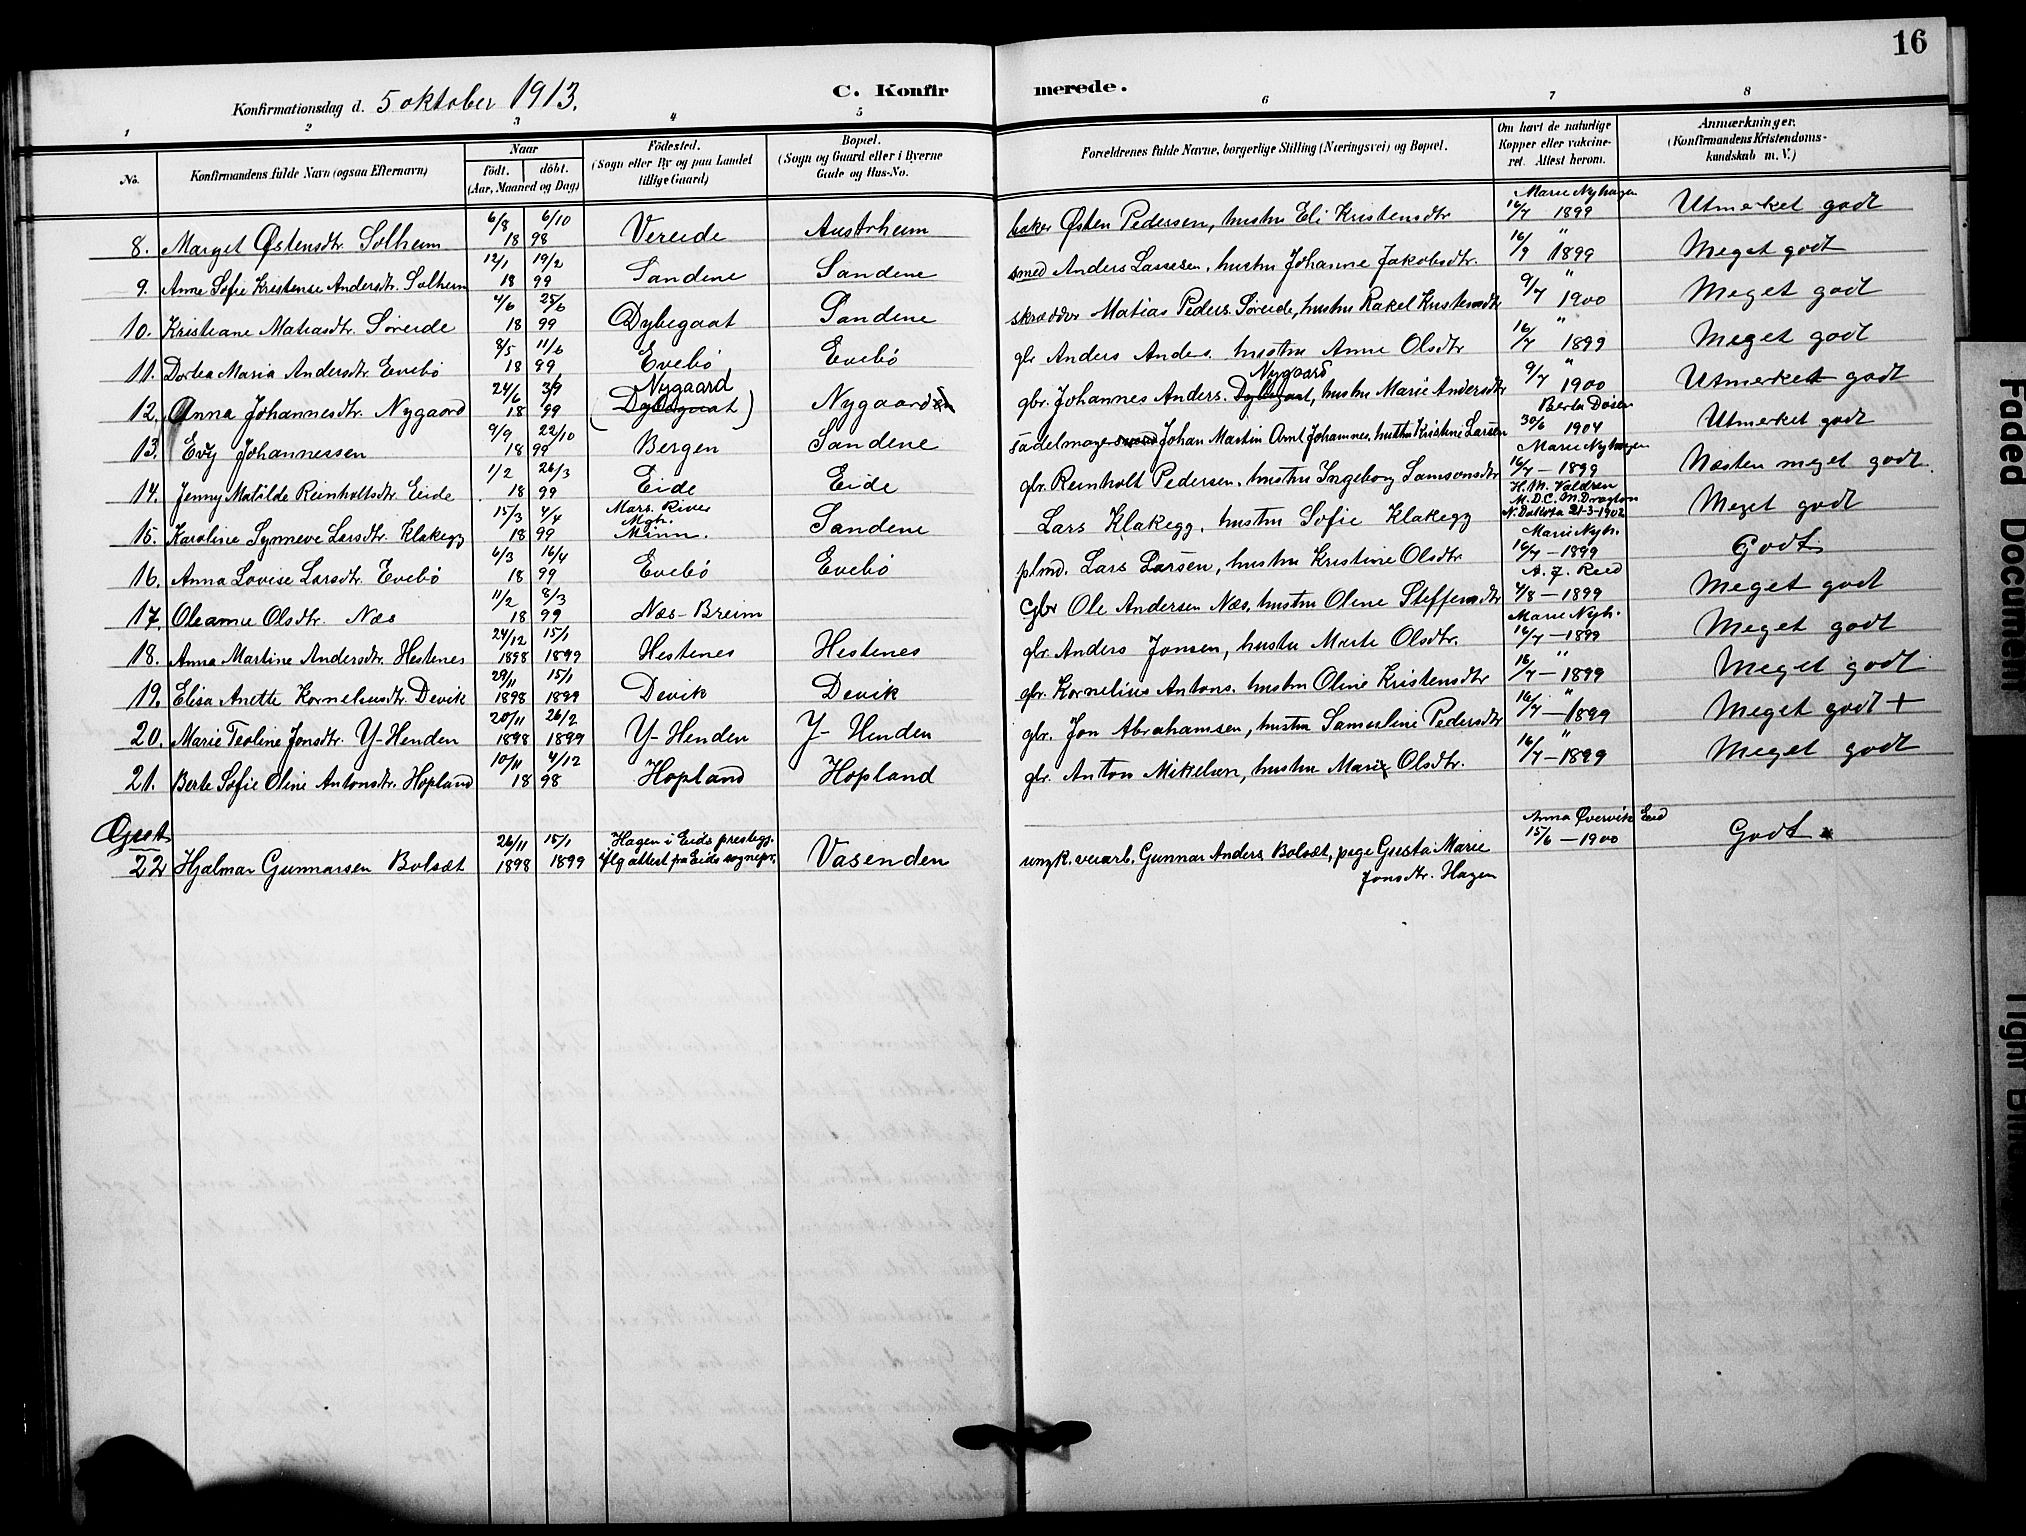 16
Konfirmationsdag d. 5 oktober 1913. C. Konfir merede.
1 2 3 4 5 6 7 8
No. Konfirmandens fulde Navn (ogsaa Efternavn) Naar født. døbt. (Aar, Maaned og Dag) Fødested. (Sogn eller By og paa Landet tillige Gaard) Bopæl. (Sogn og Gaard eller i Byerne Gade og Hus-No. Forældrenes fulde Navne, borgerlige Stilling (Næringsvei) og Bopæl. Om havt de naturlige Kopper eller vakcineret. Attest herom. Anmærkninger. (Konfirmandens Kristendomskundskab m. V.)
8. Marget Østensdtr. Solheim 6/8 18 6/10 98 Vereide Austrheim baker Østen Pedersen, hustru Eli Kristensdtr Marie Nyhagen 16/7 1899 Utmerket godt
9. Anne Sofie Kristense Andersdtr. Solheim 12/1 18 19/2 99 Sandene Sandene smed Anders Lassesen, hustru Johanne Jakobsdtr. 16/9 " 1899 Meget godt
10. Kristiane Matiasdtr. Søreide 4/6 18 25/6 99 Dybegaat Sandene skrædder Matias Peders. Søreide, hustru Rakel Kristensdtr 9/7 " 1900 Meget godt
11. Dortea Maria Andersdtr. Evebø 8/5 18 11/6 99 Evebø Evebø gbr Anders Anders. hustru Anne Olsdtr 16/7 " 1899 Meget godt
12. Anna Johannesdtr. Nygaard 24/6 18 3/9 99 Nygaard (Dybegaat) Nygaarden gbr. Johannes Anders. Dybegaat, Nygaard hustru Marie Andersdtr 9/7 " 1900 Utmerket godt
13. Evy Johannessen 9/9 18 22/10 99 Bergen Sandene sadelmager Johan Martin Aml Johannes. hustru Kristine Larsen Berta Døsen 30/6 1904 Utmerket godt
14. Jenny Matilde Reinholtsdtr. Eide 1/2 18 26/3 99 Eide Eide gbr. Reinholt Pedersen, hustru Ingeborg Samsonsdtr Marie Nyhagen 16/7 - 1899 Næsten meget godt.
15. Karoline Synneve Larsdtr. Klakegg 15/3 18 4/4 99 Mars. River Mgh. Minn. Sandene Lars Klakegg, hustru Sofie Klakegg H. M. Valdren M. D. C. M. Drayton N. Dakota 21-3-1902 Meget godt
16. Anna Lovise Larsdtr. Evebø 6/3 18 16/4 99 Evebø Evebø plmd. Lars Larsen, hustru Kristine Olsdtr Marie Nyh. 16/7 - 1899 Godt
17. Oleanne Olsdtr. Næs 11/2 18 8/3 99 Næs - Breim gbr Ole Andersen Næs, hustru Oline Steffensdtr A. J. Reed 4/8 - 1899 Meget godt
18. Anna Martine Andersdtr. Hestenes 24/12 1898 15/1 1899 Hestenes Hestenes gbr. Anders Jonsen, hustru Marte Olsdtr. Marie Nyh. 16/7 - 1899 Meget godt
19. Elisa Anette Korneliusdtr. Devik 29/11 1898 15/1 1899 Devik Devik gbr. Kornelius Antons. hustru Oline Kristensdtr 16/7 " - 1899 Meget godt
20. Marie Teoline Jonsdtr. Y-Henden 20/11 1898 26/2 1899 Y-Henden Y-Henden gbr. Jon Abrahamsen, hustru Samueline Pedersdtr 16/7 " - 1899 Meget godt +
21. Berte Sofie Oline Antonsdtr. Hopland 10/11 18 4/12 98 Hopland Hopland gbr. Anton Mikelsen, hustru Marie Olsdtr. 16/7 " - 1899 Meget godt
Gut
22 Hjalmar Gunnarsen Bolsæt 26/11 1898 15/1 1899 Hagen i Eids prestegj. iflg attest fra Eids sognepr. Vasenden ungk. veiarb. Gunnar Anders Bolsæt, pige Gusta Marie Jonsdtr. Hagen Anna Øvervik Eid 15/6 - 1900 Godt
Faded Document
Tight Bin